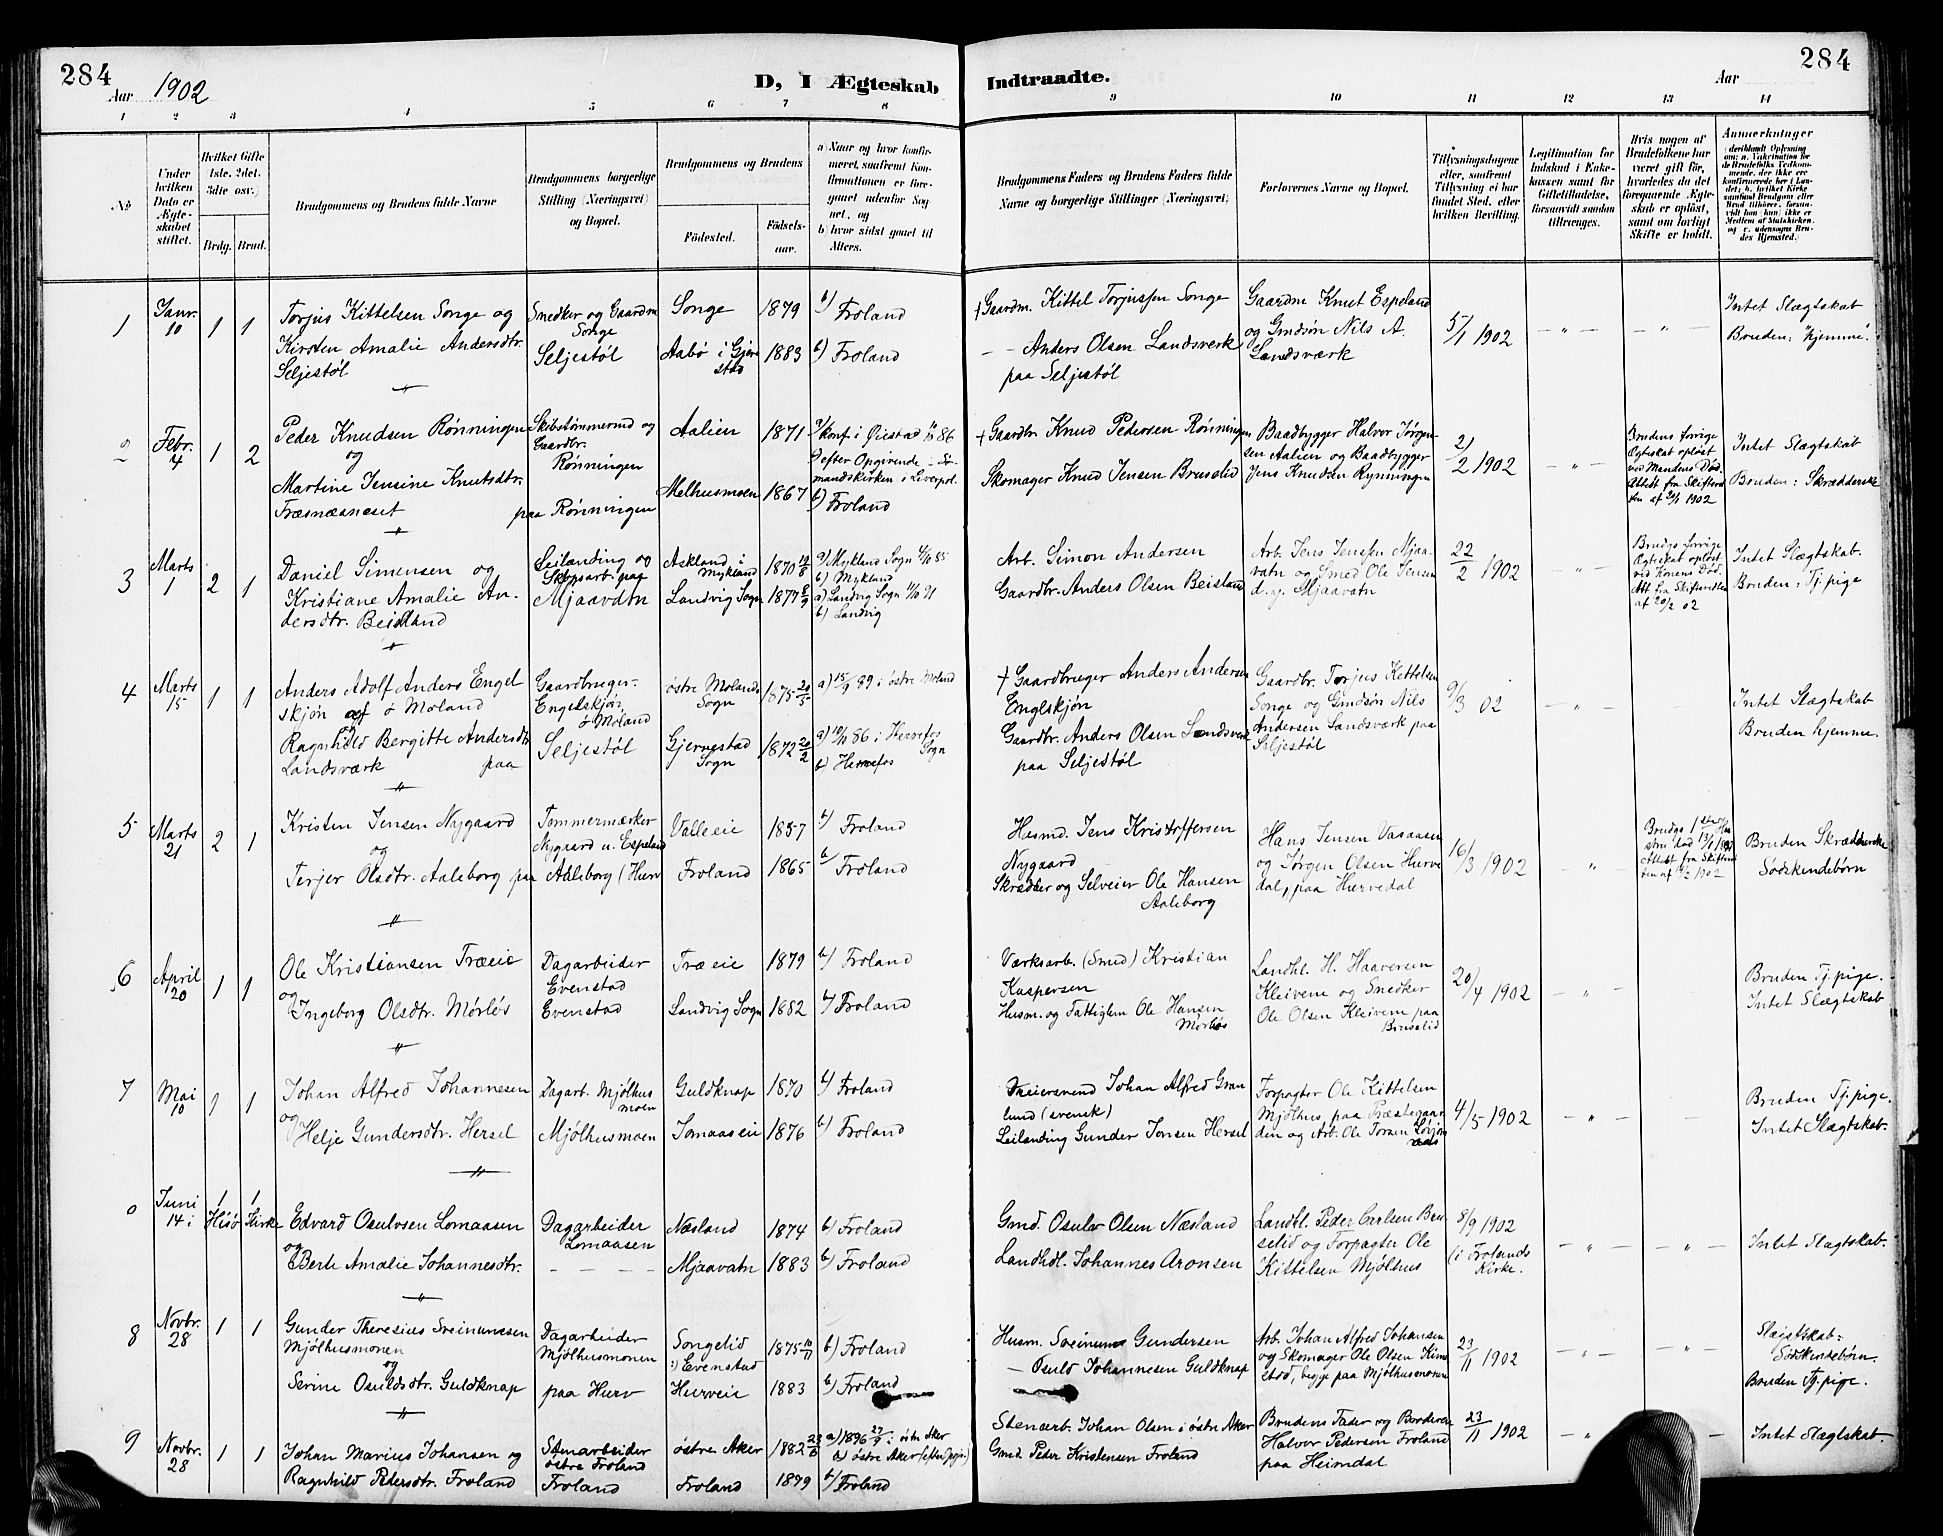 284
Aar 1902
D, I Ægteskab Indtraadte.
Aar
284
1 2 3 4 5 6 7 8 9 10 11 12 13 14
No
Under hvilken Dato er Ægteskabet stiftet.
Hvilket Gifte 1ste. 2det. 3die osv.)
Brdg. Brud.
Brudgommens og Brudens fulde Navne
Brudgommens borgerlige Stilling (Næringsvei) og Bopæl.
Brudgommens og Brudens
Fødested.
Fødselsaar.
a) Naar og hvor konfirmeret, saafremt Konfirmationen er foregaaet udenfor Sognet, og
b) hvor sidst gaaet til Alters.
Brudgommens Faders og Brudens Faders fulde Navne og borgerlige Stillinger (Næringsvei)
Forlovernes Navne og Bopæl.
Tillysningsdagene eller, saafremt Tillysning ei har fundet Sted, efter hvilken Bevilling.
Legitimation for Indskud i Enkekassen samt for Giftetilladelse, forsaavidt saadan tiltrænges.
Hvis nogen af Brudefolkene har været gift før, hvorledes da det foregaaende Ægteskab er opløst, samt om lovligt Skifte er holdt.
Anmerkninger (deriblandt Oplysning om: a. Vakcination for de Brudefolks Vedkommende, der ikke ere konfirmerede her i Landet; b. hvilket Kirkesamfund Brudgom eller Brud tilhører, forsaavidt han (hun) ikke er Medlem af Statskirken, og c. udensogns Brudes Hjemsted.)
1 Janr. 10 1 1
Torjus Kittelsen Songe og
Kirsten Amalie Andersdtr. Seljestøl
Smedker og Gaardm. Songe
Seljestøl
Songe 1879 b) Froland
Aabø i Gjerestad 1883 b) Froland
† Gaardm. Kittel Torjussen Songe
– – Anders Olsen Landsverk paa Seljestøl
Gaardm Knut Espeland og Gmdsøn Nils A. Landsværk
5/1 1902
– " – – " –
Intet Slægtskab
Bruden: "hjemme".
2 Febr. 4 1 2
Peder Knudsen Rønningen
og
Martine Jensine Knutsdtr. Træsnæsneset
Skibstømmermd og Gaardbr. Rønningen
paa Rønningen
Aalien 1871
Melhusmoen 1867
a) konf. i Øiestad 86 efter Opgivende i Sømandskirken i Liverpol.
b) Froland
† Gaardbr Knud Pedersen Rønningen
Skomager Knud Jensen Bruselid
Baadbygger Halvor Jørgensen Aalien og Baadbygger Jens Knudsen Rynningen
2/2 1902
– " –
Brudens forrige Ægteskab opløst ved Mandens Død. Attest fra Skifteretten af 1902
Intet Slægtskab
Bruden: Skrædderske
3 Marts 1 2 1
Daniel Simensen og
Kristiane Amalie Andersdtr. Beisland
Leilænding og paa Mjaavatn
Askland i Mykland 1870
Landvig Sogn
a) Mykland Sogn 85
b) Mykland
a) Landvig Sogn 91
b) Landvig
Arb. Simon Andersen
Gaardbr. Anders Olsen Beisland
Arb. Jens Jenssen Mjaavatn og Smed Ole Jensen Mjaavatn
22/2 1902
– " –
Brudgs forrige Ægteskab opløst ved Konens Død. Att fra Skifteretten af 20/2 02
Intet Slægtskab.
Bruden: Tj.pige
4 Marts 15 1 1
Anders Adolf Anders Engelskjøn af ø Moland
og
Ragnhild Bergitte Andersdtr Landsværk paa
Gaardbruger Engelskjøn ø Moland
Seljestøl
østre Molands Sogn 1875 20/5
Gjerrestad Sogn 1872 20/2
a) 15/9 89 i østre Moland
a) 86 i Herrefos Sogn
b) Herrefos
† Gaardbruger Anders Andersen Englskjøn
Gaardbr. Anders Olsen Landsverk paa Seljestøl
Gaardbr. Torjus Kittelsen Songe og Gmdsøn Nils Andersen Landsværk paa Seljestøl
9/3 02
– " –
Intet Slægtskab
Bruden hjemme.
5 Marts 21 2 1
Kristen Jensen Nygaard
og
Terjer Olsdtr. Aaleborg paa
Tømmermærker Nygaard u. Espeland
Aaleborg (Hurv
Valleeie 1857 b) Froland
Froland 1865 b) Froland
Husmd. Jens Kristoffersen Nygaard
Skrædder og Selveier Ole Hansen Aaleborg
Hans Jensen Vasaasen og Jørgen Olsen Hurvedal, paa Hurvedal
16/3 1902
"
Attest fra Skifteretten af 1902
Bruden Skrædderske
Sødskendebørn
6 April 20 1 1
Ole Kristiansen Træeie
og
Ingeborg Olsdtr. Mørløs
Dagarbeider Evenstad
Evenstad
Træeie 1879 b) Froland
Landvig Sogn 1882 b) Froland
Værksarb. (Smed) Kristian Kaspersen
Husm. og Fattiglem Ole Hansen Mørløs
Landhl. H. Haaversen Kleivene og Smedker Ole Olsen Kleivene paa Bruselid
20/4 1902
– " –
Bruden Tj.pige.
Intet Slægtskab
7 Mai 10 1 1
Johan Alfred Johannesen
og
Helje Gundersdtr. Hersel
Dagarb. Mjølhusmoen
Mjølhusmoen
Guldknap 1870 b) Froland
Lomaaseie 1876 b) Froland
Johan Alfred Granlund (svensk)
Leilænding Gunder Jonsen Hersel
Forpagter Ole Kittelsen Mjølhus paa Præstegaarden og Arb. Ole Torsen
4/5 1902
"
Bruden Tj.pige.
Intet Slægtskab.
0 Juni 14 i Hisø Kirke 1 1
Edvard Osulvsen Lomaasen
og
Berte Amalie Johannesdtr.
Dagarbeider Lomaasen
– – – –
Næsland 1874 b) Froland
Mjaavatn 1883 b) Froland
Gmd. Osulv Olsen Næsland
Landhdl. Johannes Aronsen
Landhl. Peder Carlsen Bruselid og Forpagter Ole Kittelsen Mjølhus
8/9 1902
(i Frolands Kirke.
– " – – " –
Intet Slægtskab.
8 Novbr. 28 1 1
Gunder Theresius Sveinunesen Mjølhusmonen
og
Serine Osuldsdtr. Guldknap
Dagarbeider Mjølhusmonen
paa Hurv
Songelid :) Evenstad 1875 10/11 b) Froland
Hurveie 1883 b) Froland
Husm. Sveinung Gundersen
– Osuld Johannesen Guldknap
Arb. Johan Alfred Johansen og Skomager Ole Olsen begge paa Mjølhusmonen
23/11 1902
– " – – " –
Slægtskab:
Sødskendebørn.
Bruden Tj.pige.
9 Novbr. 28 1 1
Johan Marius Johansen og
Ragnhild Pedersdtr. Froland
Stenarbeider østre Froland
Froland
østre Aker 1882
Froland 1879
a) 1896 27/9 i østr Aker
b) østre Aker
b) Froland
Stenarb. Johan Olsen i østre Aker
Gmd. Peder Kristensen Froland
Brudens Fader og Broderen Halvor Pedersen Froland paa Heimdal
23/11 1902
– " –
Intet Slægtskab.